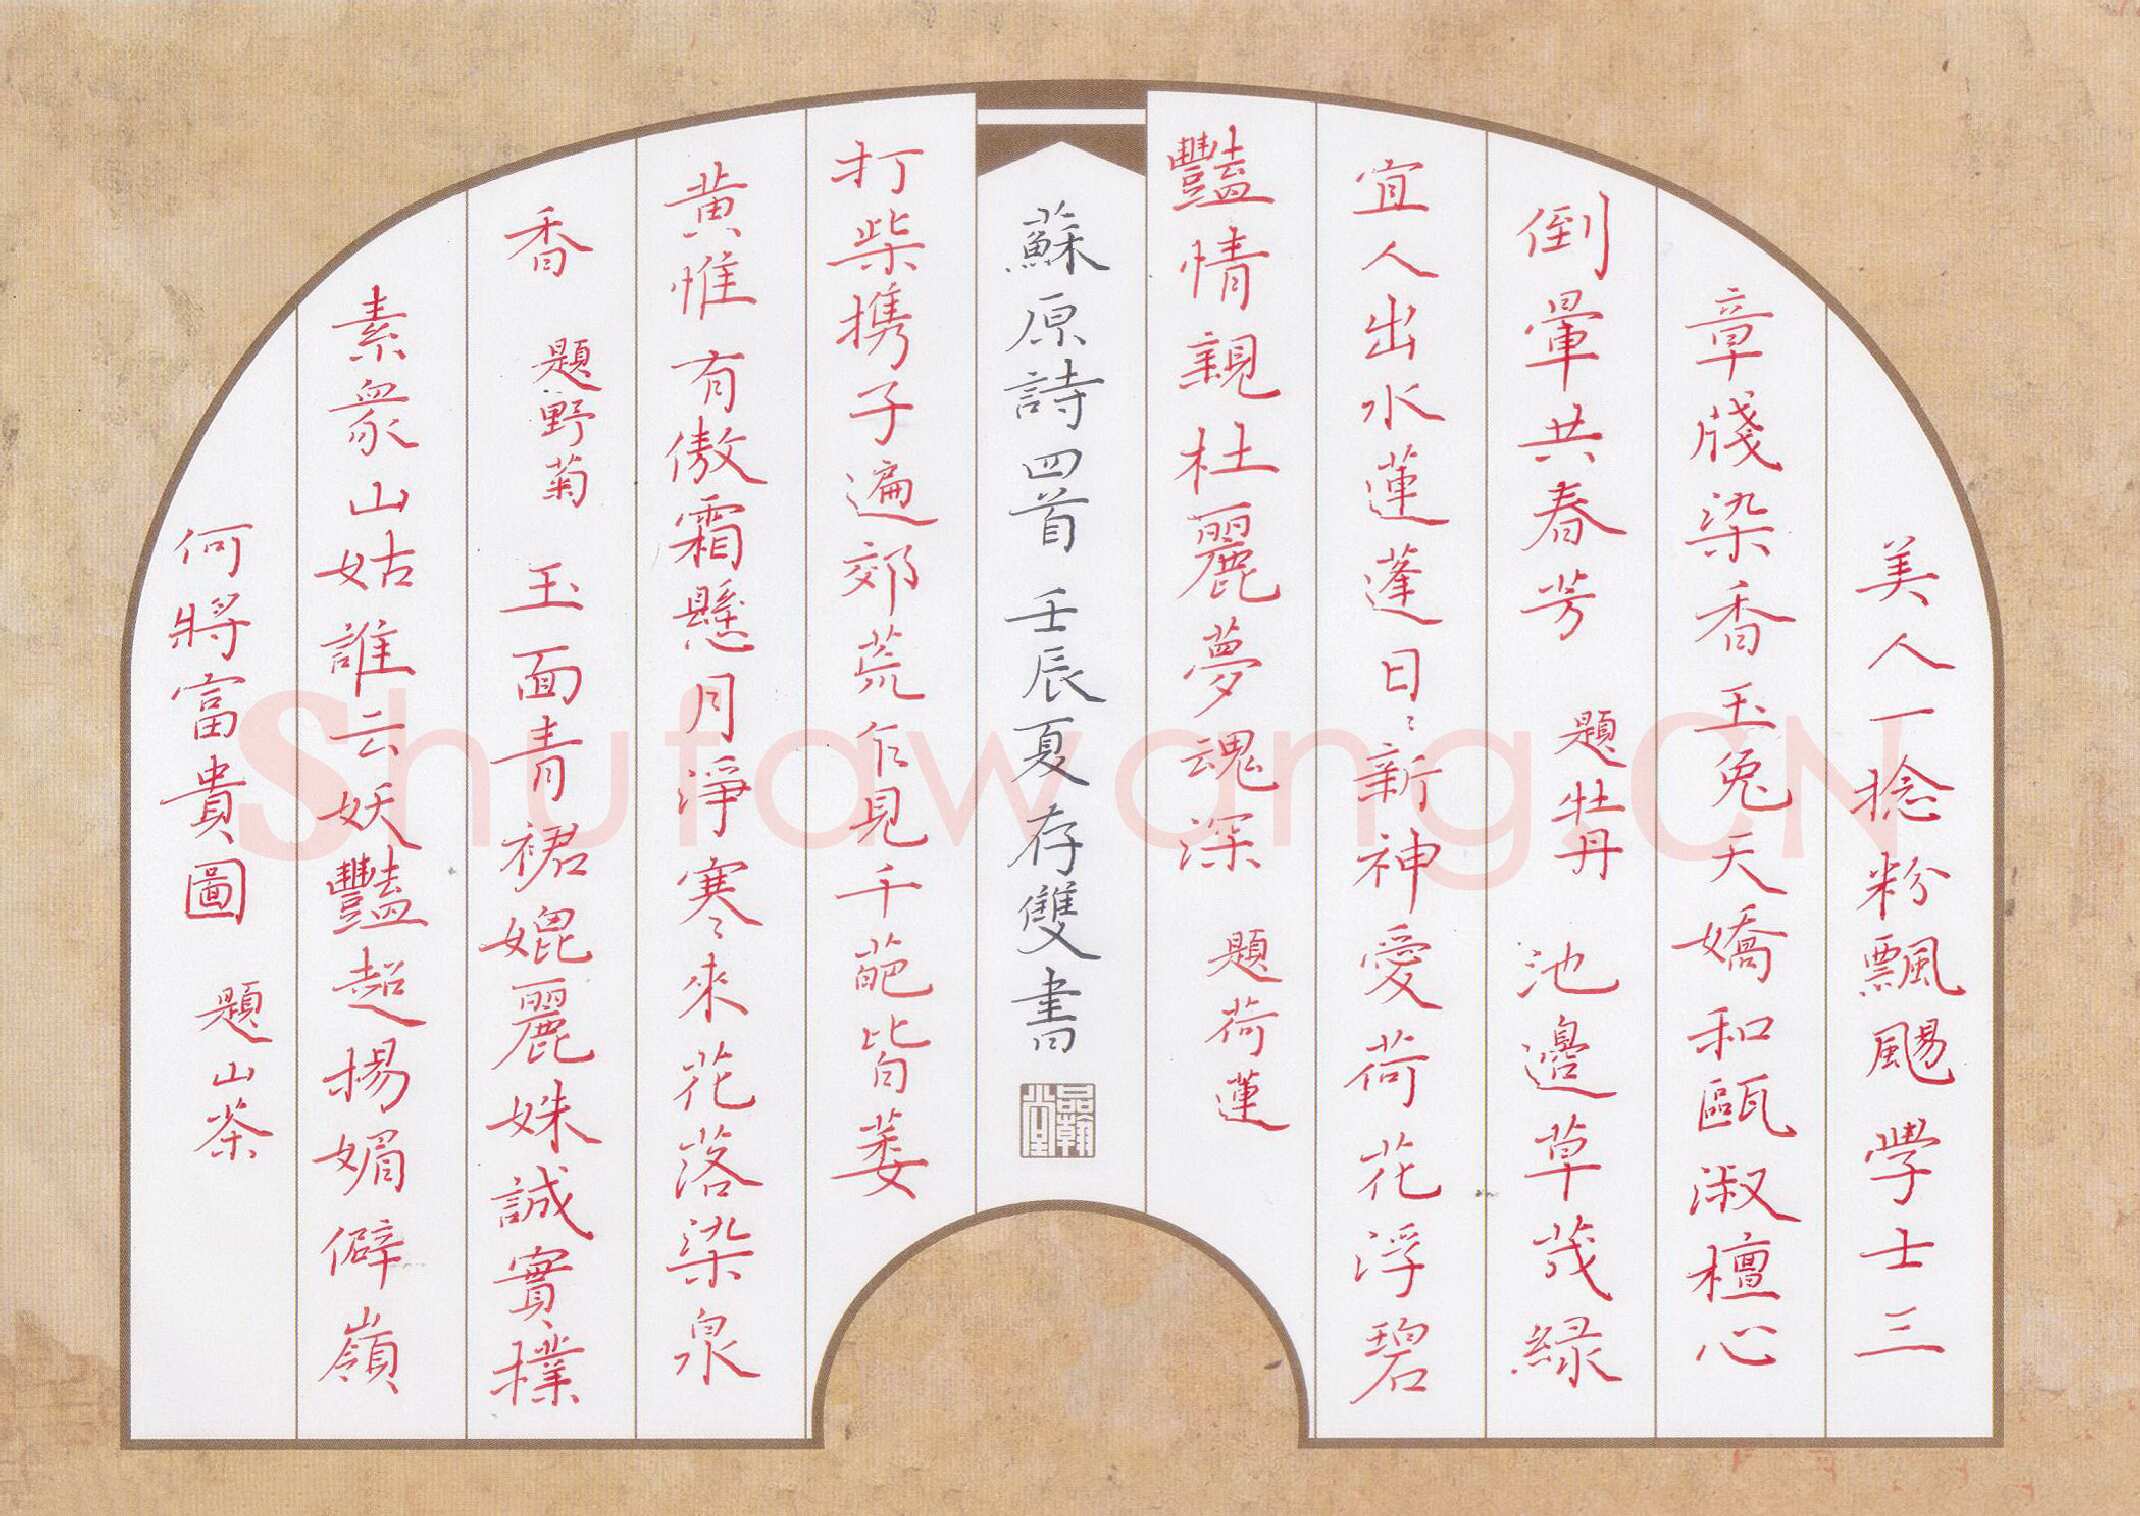 美人一捻粉飄颺學士三
章牋染香玉兔天嬌和甌淑檀心
倒暈共春芳 題牡丹 池邊草茂綠
宜人出水蓮蓬日〻新神愛荷花浮碧
豔情親杜麗夢魂深 題荷蓮
蘇原詩四首 壬辰夏存雙書
品翰堂
打柴携子遍郊荒乍見千葩皆萎
黄惟有傲霜懸月淨寒〻來花落染泉
香 題野菊 玉面青裙媲麗姝誠實樸
素衆山姑誰云妖豔超楊媚僻嶺
何將富貴圖 題山茶
Shufawang.CN